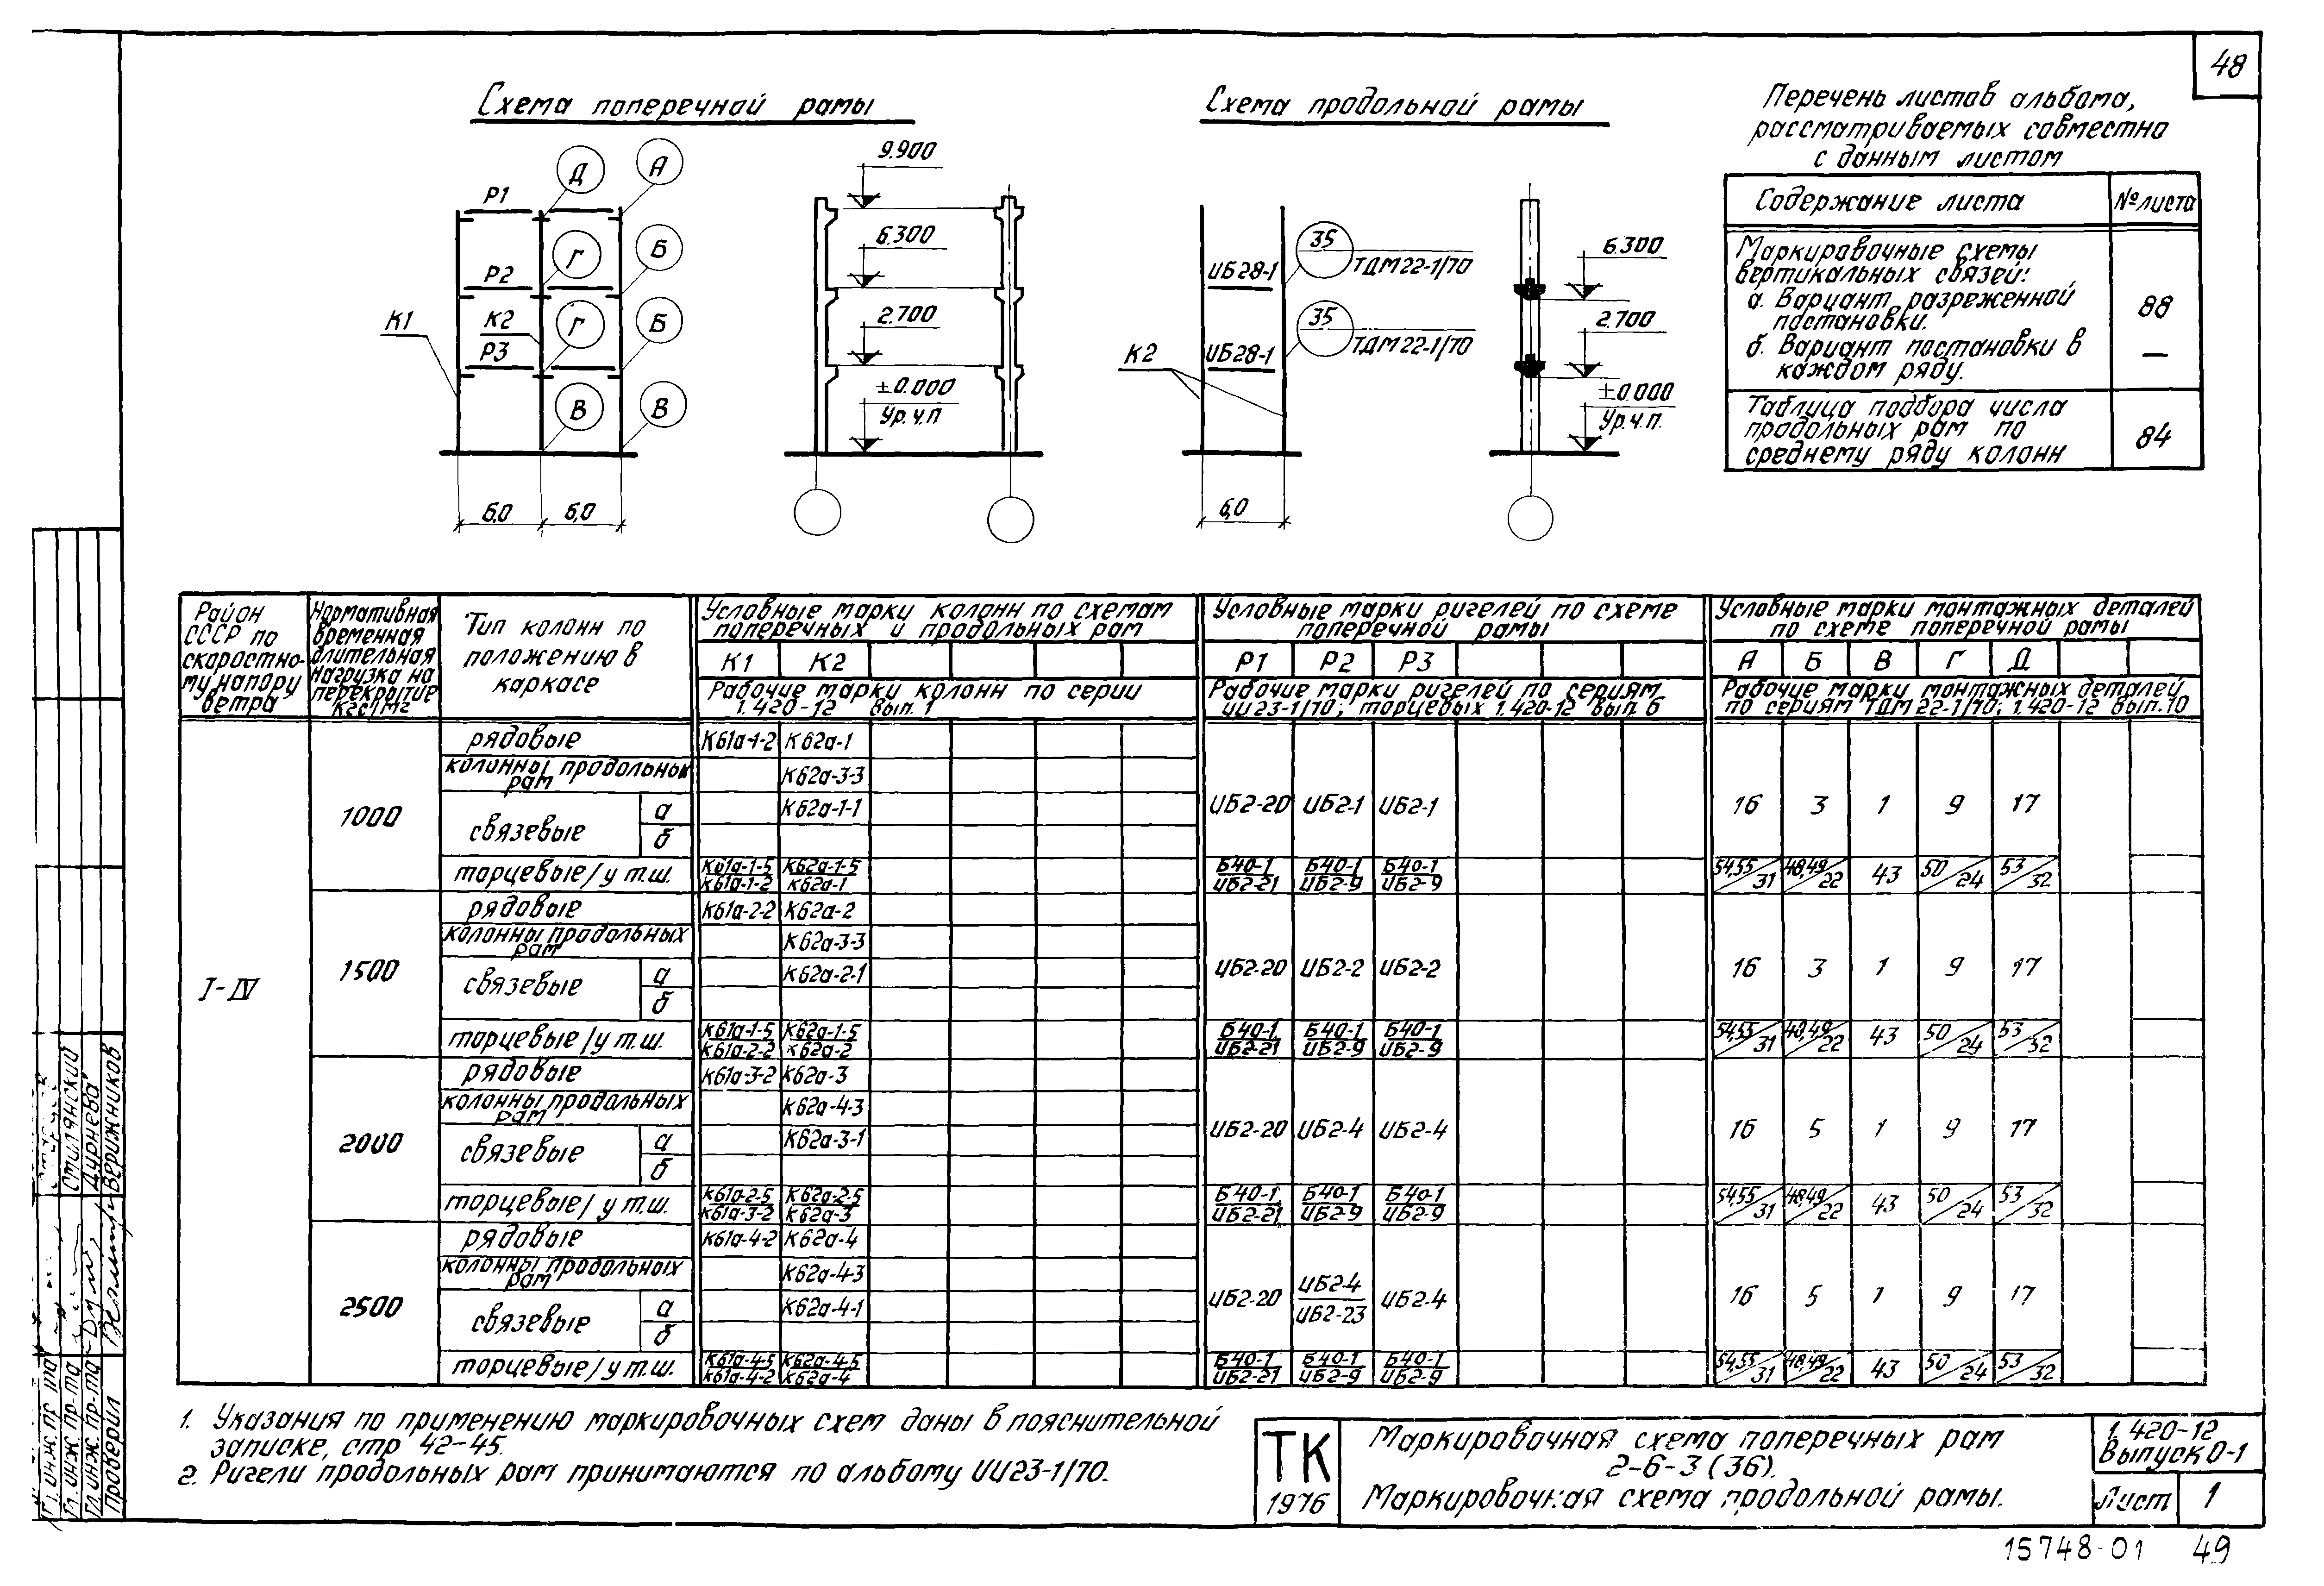 48
Схема поперечной рамы
Схема продольной рамы
Перечень листов альбома,
рассматриваемых совместно
с данным листом
Содержание листа
№ листа
Маркировочные схемы
вертикальных связей:
а. Вариант разреженной
постановки.
88
б. Вариант постановки в
каждом ряду.
—
Таблица подбора числа
продольных рам по
среднему ряду колонн
84
Р1
Д
А
Р2
Г
Б
К1
К2
Р3
Г
Б
В
В
6,0
6,0
9.900
6.300
2.700
±0.000
Ур.ч.п
ИБ28-1
35
ТДМ22-1/70
ИБ28-1
35
ТДМ22-1/70
К2
6,0
6.300
2.700
±0.000
Ур.ч.п.
Район
СССР по
скоростно-
му напору
ветра
Нормативная
временная
длительная
нагрузка на
перекрытие
кгс/м2
Тип колонн по
положению в
каркасе
Условные марки колонн по схемам
поперечных и продольных рам
К1 К2
Рабочие марки колонн по серии
1.420-12 вып. 1
Условные марки ригелей по схеме
поперечной рамы
Р1 Р2 Р3
Рабочие марки ригелей по сериям
ИИ23-1/70; торцевых 1.420-12 вып. 6
Условные марки монтажных деталей
по схеме поперечной рамы
А Б В Г Д
Рабочие марки монтажных деталей
по сериям ТДМ22-1/70; 1.420-12 вып.10
I-IV
1000
рядовые К61а-1-2 К62а-1
колонны продольных
рам К62а-3-3
связевые а К62а-1-1
б
ИБ2-20 ИБ2-1 ИБ2-1 16 3 1 9 17
торцевые/у т.ш. К61а-1-5 К62а-1-5 Б40-1 Б40-1 Б40-1 54,55/31 48,49/22 43 50/24 53/32
К61а-1-2 К62а-1 ИБ2-21 ИБ2-9 ИБ2-9
1500
рядовые К61а-2-2 К62а-2
колонны продольных
рам К62а-3-3
связевые а К62а-2-1
б
ИБ2-20 ИБ2-2 ИБ2-2 16 3 1 9 17
торцевые/у т.ш. К61а-1-5 К62а-1-5 Б40-1 Б40-1 Б40-1 54,55/31 48,49/22 43 50/24 53/32
К61а-2-2 К62а-2 ИБ2-21 ИБ2-9 ИБ2-9
2000
рядовые К61а-3-2 К62а-3
колонны продольных
рам К62а-4-3
связевые а К62а-3-1
б
ИБ2-20 ИБ2-4 ИБ2-4 16 5 1 9 17
торцевые/у т.ш. К61а-2-5 К62а-2-5 Б40-1 Б40-1 Б40-1 54,55/31 48,49/22 43 50/24 53/32
К61а-3-2 К62а-3 ИБ2-21 ИБ2-9 ИБ2-9
2500
рядовые К61а-4-2 К62а-4
колонны продольных
рам К62а-4-3
связевые а К62а-4-1
б
ИБ2-20 ИБ2-4/ИБ2-23 ИБ2-4 16 5 1 9 17
торцевые/у т.ш. К61а-4-5 К62а-4-5 Б40-1 Б40-1 Б40-1 54,55/31 48,49/22 43 50/24 53/32
К61а-4-2 К62а-4 ИБ2-21 ИБ2-9 ИБ2-9
1. Указания по применению маркировочных схем даны в пояснительной
записке, стр 42-45.
2. Ригели продольных рам принимаются по альбому ИИ23-1/70.
ТК
1976
Маркировочная схема поперечных рам
2-6-3 (36).
Маркировочная схема продольной рамы.
1.420-12
Выпуск 0-1
Лист 1
15748-01 49
Гл. инж. пр-та
Гл. инж. пр-та Стилянский
Гл. инж. пр-та Дурнева
Проверил Верижников